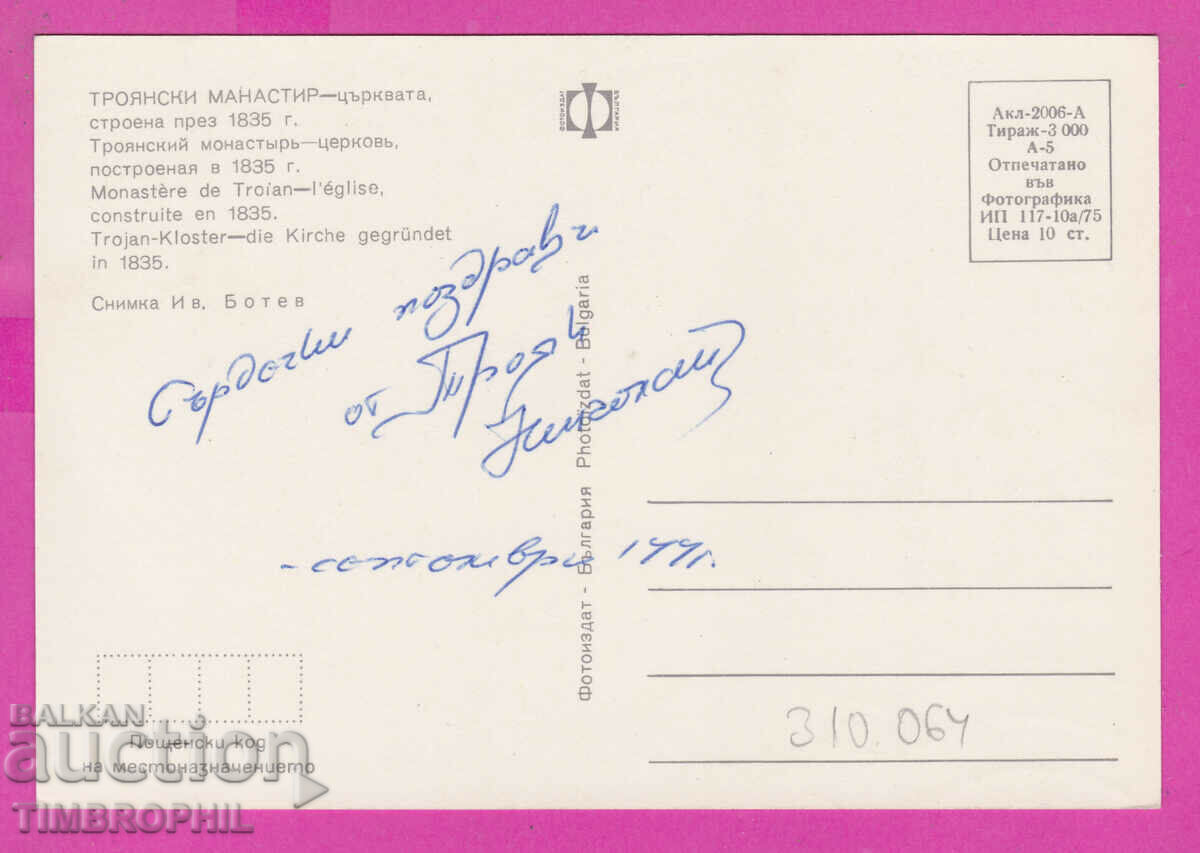 ТРОЯНСКИ МАНАСТИР—църквата,
строена през 1835 г.
Троянский монастырь—церковь,
построеная в 1835 г.
Monastère de Troïan—l'église,
construite en 1835.
Trojan-Kloster—die Kirche gegründet
in 1835.
Снимка Ив. Ботев
ФОТОИЗДАТ
БЪЛГАРИЯ
Акл-2006-А
Тираж-3 000
А-5
Отпечатано
във
Фотографика
ИП 117-10а/75
Цена 10 ст.
Сърдечни поздрави
от Троян
-септември 1991г.
Фотоиздат - България Photoizdat - Bulgaria
310.064
Пощенски код
на местоназначението
BALKAN
auction
TIMBROPHIL